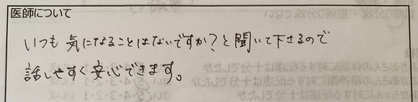 医師について
いつも気になることはないですか?と聞いて下さるので
話しやすく安心できます。